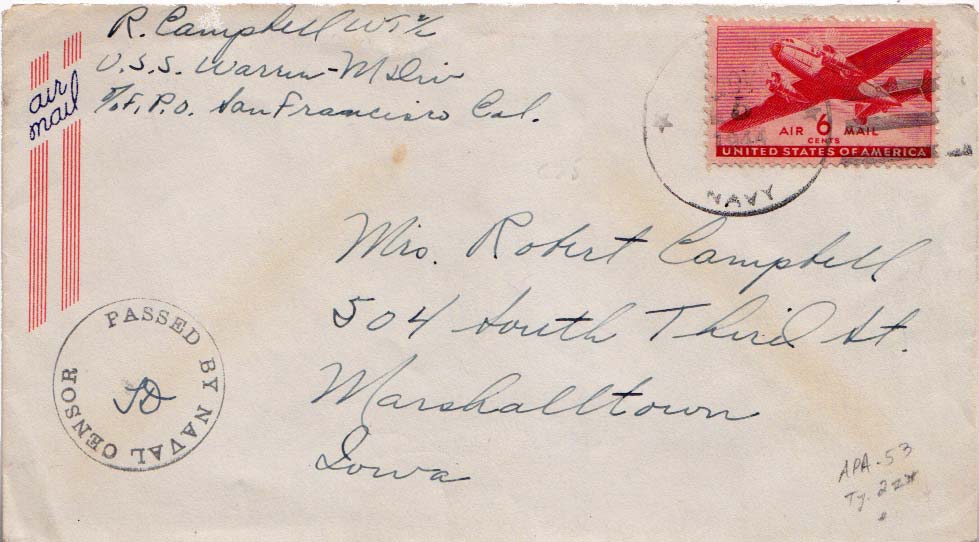 R. Campbell WT 2/c
U.S.S. Warren - M Div
℅ F.P.O. San Francisco Cal.
air
mail
5
1944
NAVY
AIR 6 MAIL
CENTS
UNITED STATES OF AMERICA
Mrs. Robert Campbell
504 South Third St.
Marshalltown
Iowa
PASSED BY NAVAL CENSOR
APA-53
Ty.